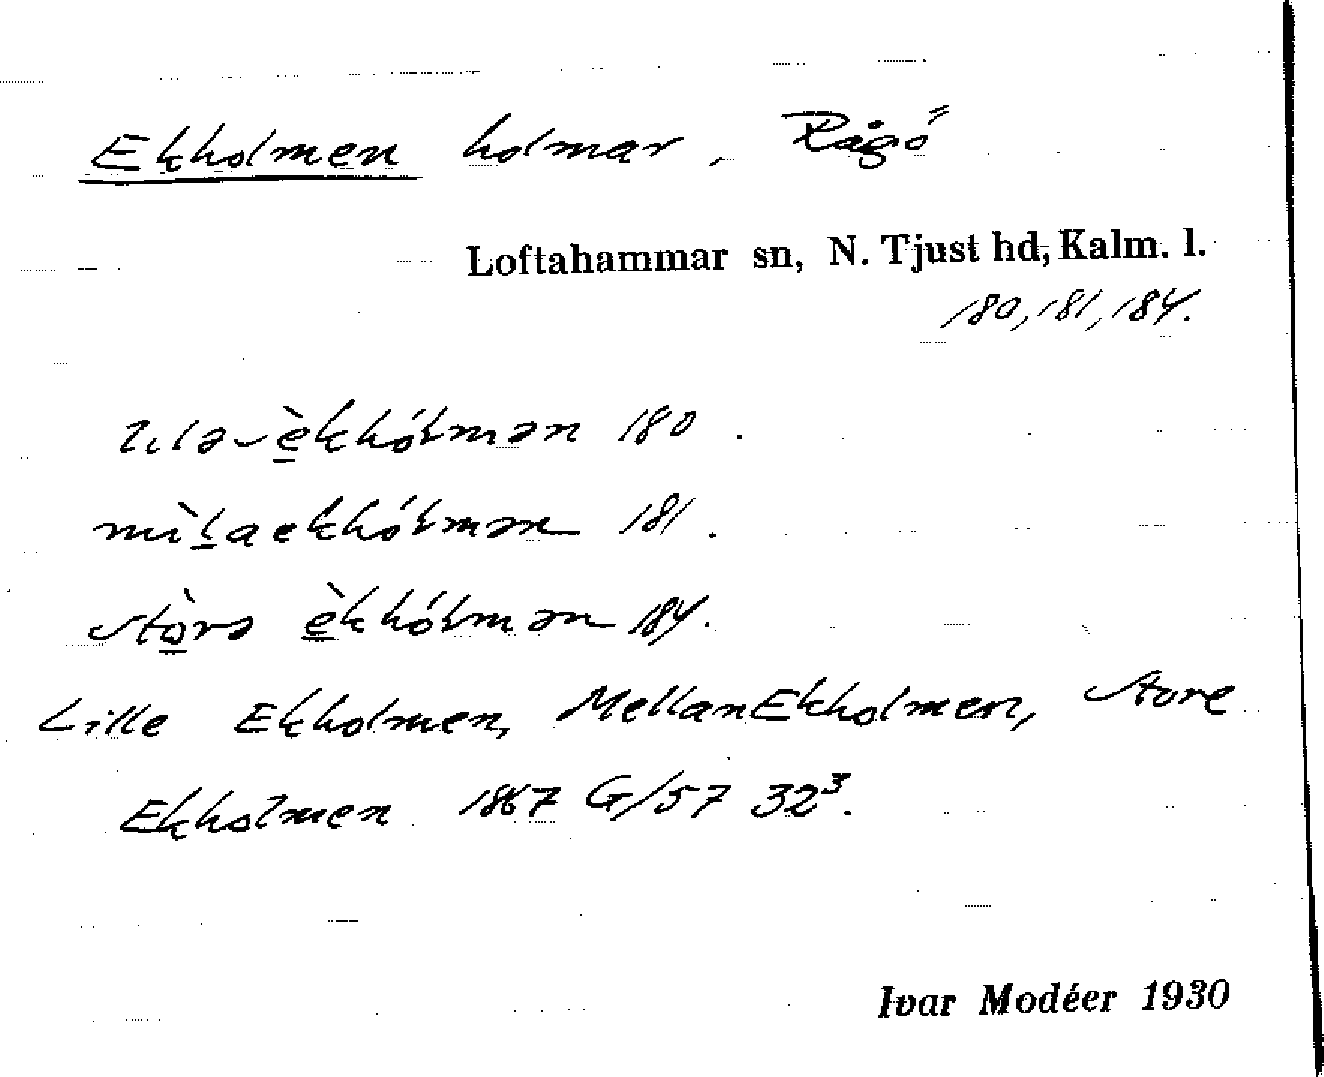 Ekholmen holmar, Rågö
Loftahammar sn, N. Tjust hd, Kalm. l.
180, 181, 184.
180.
181.
184.
Lille Ekholmen, MellanEkholmen, Store
Ekholmen 1867 G/57 32³.
Ivar Modéer 1930